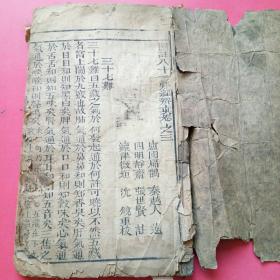 八十一難經辨真卷之三
盧國扁鵲 秦越人 述
四明靜齋 張世賢 註
三十七難
三十七難曰五藏之氣於何發起通於何許可曉以不然五藏
者當上關於九竅也故肺氣通於鼻鼻和則知香臭矣肝氣通
於目目和則知黑白矣脾氣通於口口和則知穀味矣心氣通
於舌舌和則知五味矣腎氣通於耳耳和則知五音矣